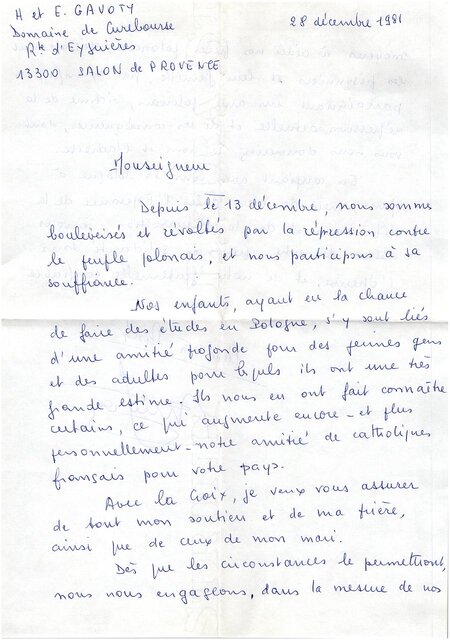 H et E. GAVOTY
28 décembre 1981
Domaine de Curebourse
Rte d'Eyguières
13300 SALON de PROVENCE
Monseigneur
Depuis le 13 décembre, nous sommes
bouleversés et révoltés par la répression contre
le peuple polonais, et nous participons à sa
souffrance.
Nos enfants, ayant eu la chance
de faire des études en Pologne, s'y sont liés
d'une amitié profonde pour des jeunes gens
et des adultes pour lesquels ils ont une très
grande estime. Ils nous en ont fait connaître
certains, ce qui augmente encore - et plus
personnellement - notre amitié de catholiques
français pour votre pays.
Avec la Croix, je veux vous assurer
de tout mon soutien et de ma prière,
ainsi que de ceux de mon mari.
Dès que les circonstances le permettront,
nous nous engageons, dans la mesure de nos